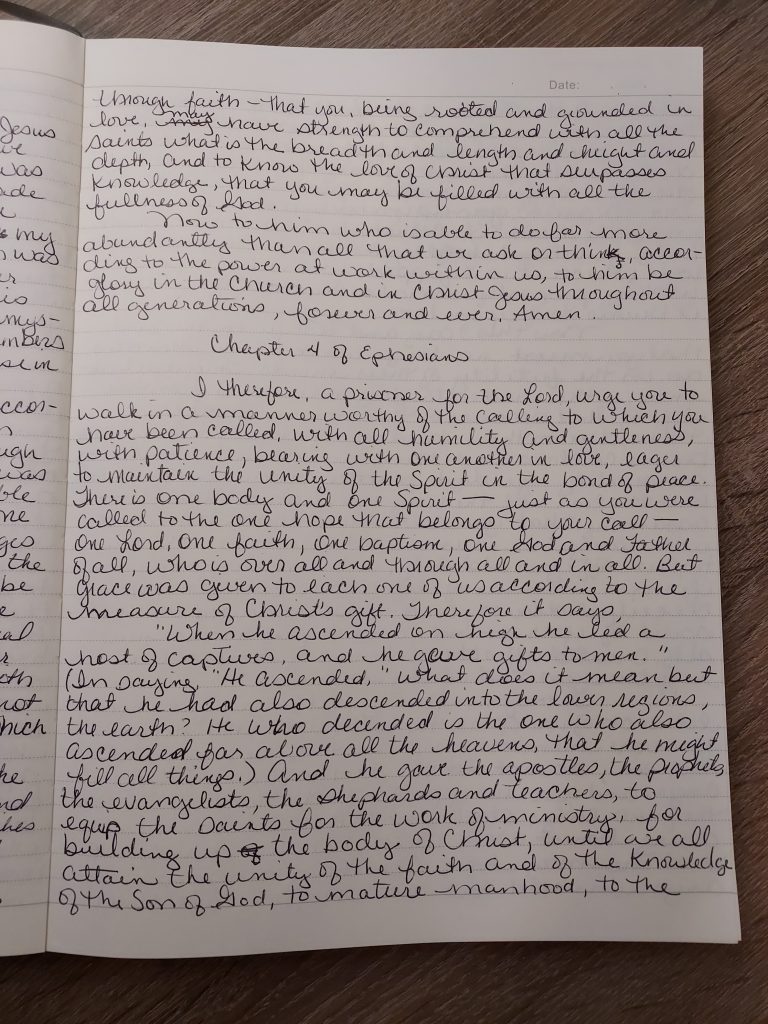 Jesus
was
my
was
is
mys-
umbers
se in
accor-
ugh
was
ble
ne
ges
the
be
al
oth
not
which
he
nd
ches
Date:
through faith - that you, being rooted and grounded in
love, may have strength to comprehend with all the
saints what is the breadth and length and height and
depth, and to know the love of Christ that surpasses
knowledge, that you may be filled with all the
fullness of God.
Now to him who is able to do far more
abundantly than all that we ask or think, accor-
ding to the power at work within us, to him be
glory in the Church and in Christ Jesus throughout
all generations, forever and ever. Amen.
Chapter 4 of Ephesians
I therefore, a prisoner for the Lord, urge you to
walk in a manner worthy of the calling to which you
have been called, with all humility and gentleness,
with patience, bearing with one another in love, eager
to maintain the unity of the Spirit in the bond of peace.
There is one body and one Spirit — just as you were
called to the one hope that belongs to your call —
one Lord, one faith, one baptism, one God and Father
of all, who is over all and through all and in all. But
grace was given to each one of us according to the
measure of Christ's gift. Therefore it says,
"When he ascended on high he led a
host of captives, and he gave gifts to men."
(In saying, "He ascended," what does it mean but
that he had also descended into the lower regions,
the earth? He who decended is the one who also
ascended far above all the heavens, that he might
fill all things.) And he gave the apostles, the prophets,
the evangelists, the shephards and teachers, to
equp the saints for the work of ministry, for
building up of the body of Christ, until we all
attain the unity of the faith and of the knowledge
of the Son of God, to mature manhood, to the